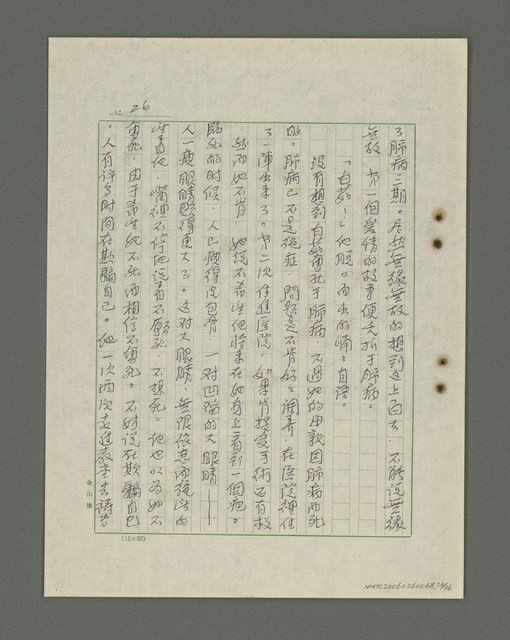 No. 26
了肺病三期。居然無緣無故的想到這上面去，不能說無緣
無故，第一個愛情的故事便夭折于肺病。
「白茹！」他脫口而出的喃喃自語。
沒有想到白茹會死于肺病，不過她的母親因肺病而死
的。肺病已不是絕症，問題是不肯好好調養，在医院裡住
了一陣出來了。第二次住進医院，如果肯接受手術还有救
然而她不肯，她說不希望他將來在她身上看到一個疤。
臨死的時候，人已瘦得皮包骨，一对凹陷的大眼睛——
人一瘦眼睛顯得更大了。这对大眼睛，無限依恋而
看他，嘴裡不停地說着不願死，不想死。他也以为她不
會死，由于希望她不死而相信不會死。不如說在欺騙自已
，人有許多时间在欺騙自己。他一次兩次去过教堂去禱告
金山牌
(12×25)
NMTL20060260068,26/36